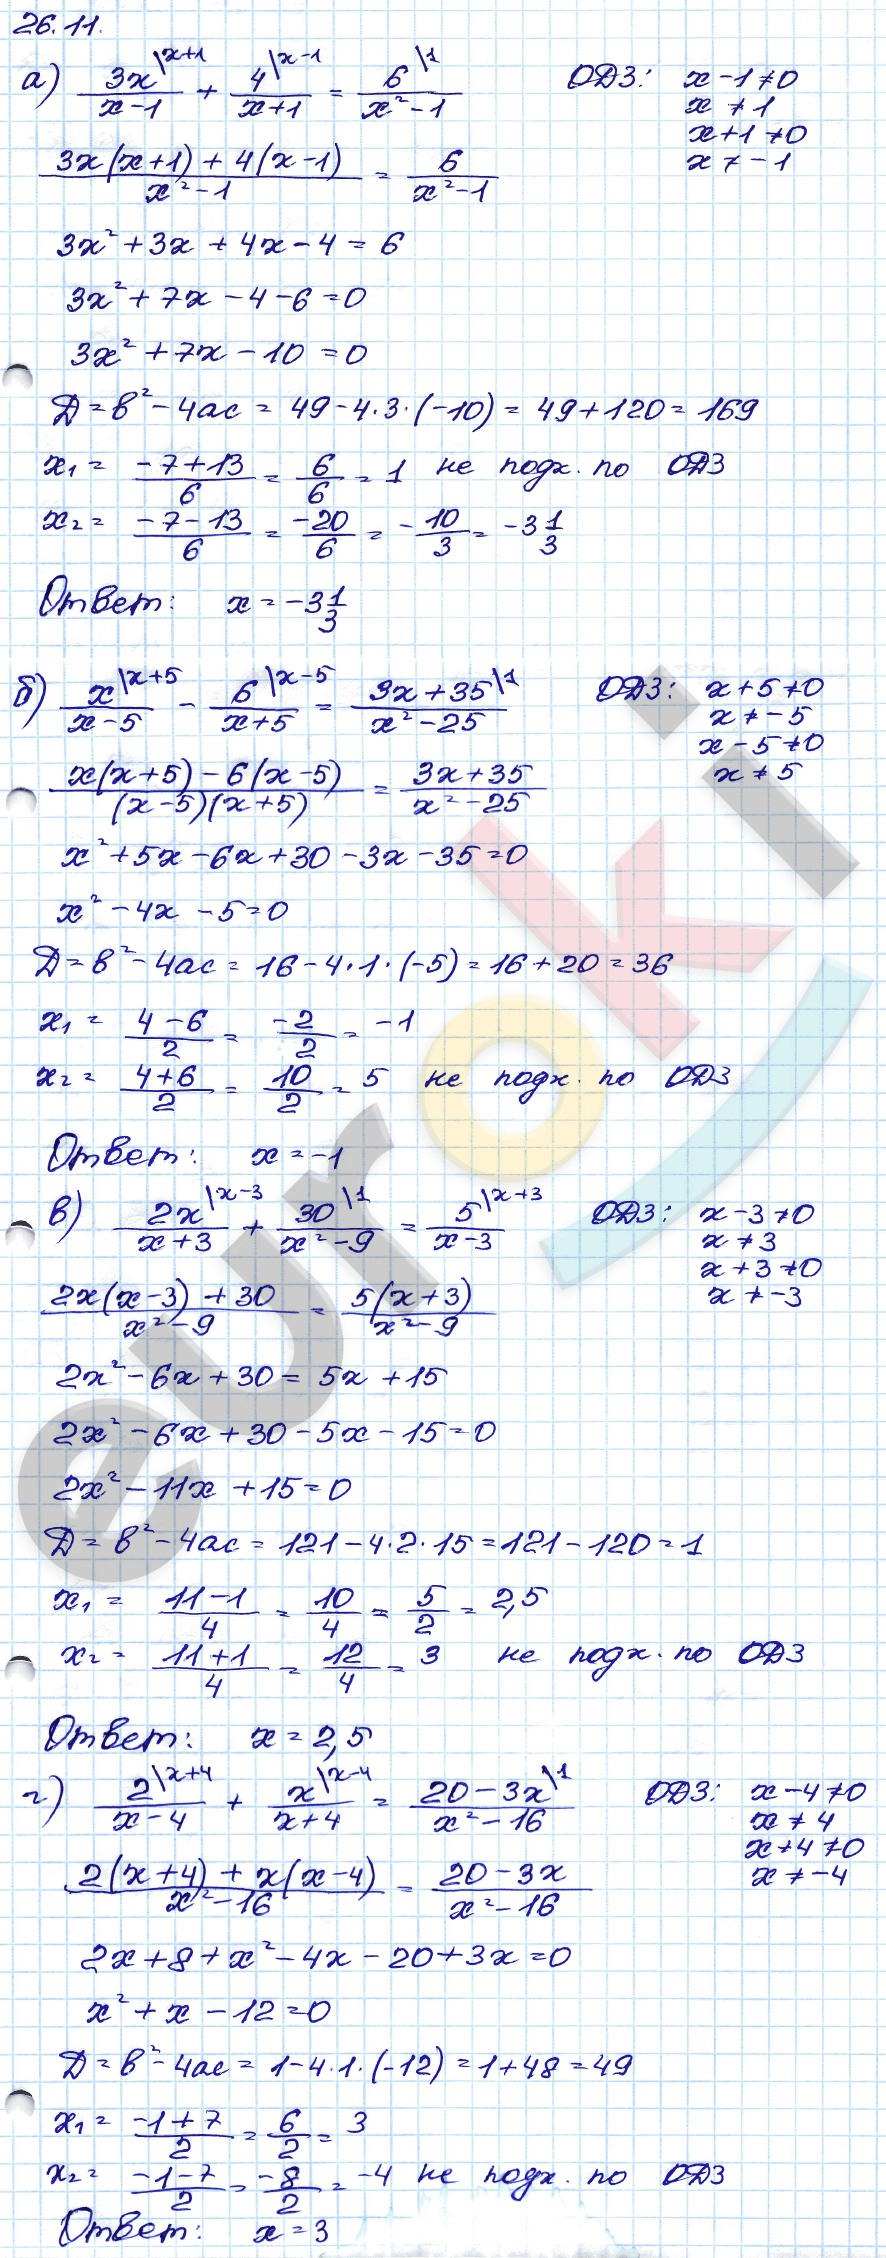 26.11.
а) 3x\x+1 / x-1 + 4\x-1 / x+1 = 6\1 / x²-1 ОДЗ: x-1≠0
x ≠ 1
x+1≠0
x ≠ -1
3x(x+1)+4(x-1) / x²-1 = 6 / x²-1
3x²+3x+4x-4=6
3x²+7x-4-6=0
3x²+7x-10=0
Д=в²-4ас=49-4·3·(-10)=49+120=169
x₁= -7+13 / 6 = 6/6 = 1 не подх. по ОДЗ
x₂= -7-13 / 6 = -20/6 = -10/3 = -3 1/3
Ответ: x=-3 1/3
б) x\x+5 / x-5 - 6\x-5 / x+5 = 3x+35\1 / x²-25 ОДЗ: x+5≠0
x≠-5
x-5≠0
x≠5
x(x+5)-6(x-5) / (x-5)(x+5) = 3x+35 / x²-25
x²+5x-6x+30-3x-35=0
x²-4x-5=0
Д=в²-4ас=16-4·1·(-5)=16+20=36
x₁= 4-6 / 2 = -2/2 = -1
x₂= 4+6 / 2 = 10/2 = 5 не подх. по ОДЗ
Ответ: x=-1
в) 2x\x-3 / x+3 + 30\1 / x²-9 = 5\x+3 / x-3 ОДЗ: x-3≠0
x≠3
x+3≠0
x≠-3
2x(x-3)+30 / x²-9 = 5(x+3) / x²-9
2x²-6x+30=5x+15
2x²-6x+30-5x-15=0
2x²-11x+15=0
Д=в²-4ас=121-4·2·15=121-120=1
x₁= 11-1 / 4 = 10/4 = 5/2 = 2,5
x₂= 11+1 / 4 = 12/4 = 3 не подх. по ОДЗ
Ответ: x=2,5
г) 2\x+4 / x-4 + x\x-4 / x+4 = 20-3x\1 / x²-16 ОДЗ: x-4≠0
x≠4
x+4≠0
x≠-4
2(x+4)+x(x-4) / x²-16 = 20-3x / x²-16
2x+8+x²-4x-20+3x=0
x²+x-12=0
Д=в²-4ас=1-4·1·(-12)=1+48=49
x₁= -1+7 / 2 = 6/2 = 3
x₂= -1-7 / 2 = -8/2 = -4 не подх. по ОДЗ
Ответ: x=3
euroki